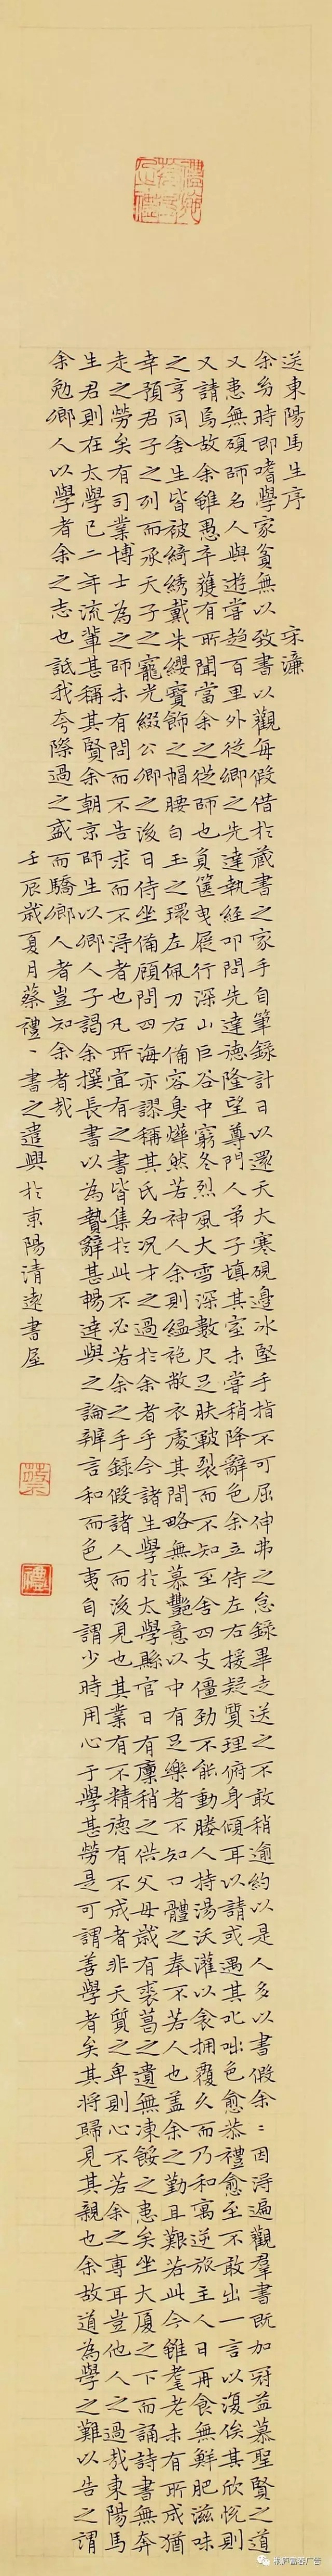 送東陽馬生序 宋濂
余幼時即嗜學家貧無以致書以觀每假借於藏書之家手自筆錄計日以還天大寒硯邊冰堅手指不可屈伸弗之怠錄畢走送之不敢稍逾約以是人多以書假余：因淂遍觀羣書既加冠益慕聖賢之道
又患無碩師名人與遊嘗趨百里外從鄉之先達執經叩問先達德隆望尊門人弟子填其室未嘗稍降辭色余立侍左右援疑質理俯身傾耳以請或遇其叱咄色愈恭禮愈至不敢出一言以復俟其欣悅則
又請焉故余雖愚卒獲有所聞當余之從師也負篋曳屣行深山巨谷中窮冬烈風大雪深數尺足膚皸裂而不知至舍四支僵勁不能動媵人持湯沃灌以衾擁覆久而乃和寓逆旅主人日再食無鮮肥滋味
之享同舍生皆被綺繡戴朱纓寶飾之帽腰白玉之環左佩刀右備容臭燁然若神人余則縕袍敝衣處其間略無慕艷意以中有足樂者不知口體之奉不若人也蓋余之勤且艱若此今雖耄老未有所成猶
幸預君子之列而承天子之寵光綴公卿之後日侍坐備顧問四海亦謬稱其氏名況才之過於余者乎今諸生學於太學縣官日有廩稍之供父母歲有裘葛之遺無凍餒之患矣坐大厦之下而誦詩書無奔
走之勞矣有司業博士為之師未有問而不告求而不淂者也凡所宜有之書皆集於此不必若余之手錄假諸人而後見也其業有不精德有不成者非天質之卑則心不若余之專耳豈他人之過哉東陽馬
生君則在太學已二年流輩甚稱其賢余朝京師生以鄉人子謁余撰長書以為贄辭甚暢達與之論辨言和而色夷自謂少時用心于學甚勞是可謂善學者矣其將歸見其親也余故道為學之難以告之謂
余勉鄉人以學者余之志也詆我夸際遇之盛而驕鄉人者豈知余者哉
壬辰歲夏月蔡禮丶書之遣興於東陽清遠書屋